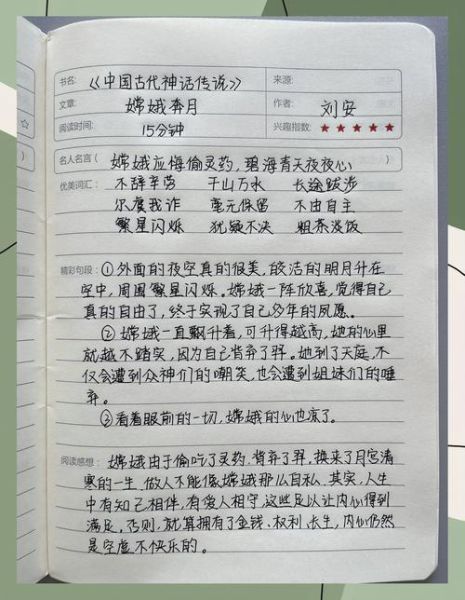 书名: 《中国古代神话传说》 来源:
文章: 嫦娥奔月 作者: 刘安
阅读时间: 15分钟 兴趣指数: ★★★★★
名人名言( 嫦娥应悔偷灵药,碧海青天夜夜心 )
优美词汇: 不辞辛劳 千山万水 长途跋涉
尔虞我诈 毫无保留 不由自主
繁星闪烁 犹疑不决 粗茶淡饭
精彩句段: ①外面的夜空真的很美,皎洁的明月升在
空中,周围繁星闪烁。嫦娥一阵欣喜,觉得自己
真的自由了,终于实现了自己多年的夙愿。
②嫦娥一直飘升着,可升得越高,她的心里
就越不踏实,因为自己背弃了羿。她到了天庭,不
仅会遭到众神们的嘲笑,也会遭到姐妹们的唾
弃。
③看着眼前的一切,嫦娥的心也凉了。
阅读感想: 嫦娥由于偷吃了灵药,背弃了羿,换来了月宫清
寒的一生,做人不能像嫦娥那么自私.其实,人生
中有知己相伴,有爱人相守,这些足以让内心得到
满足,否则,就算拥有了金钱、权利、长生,内心仍然
是空虚不快乐的。